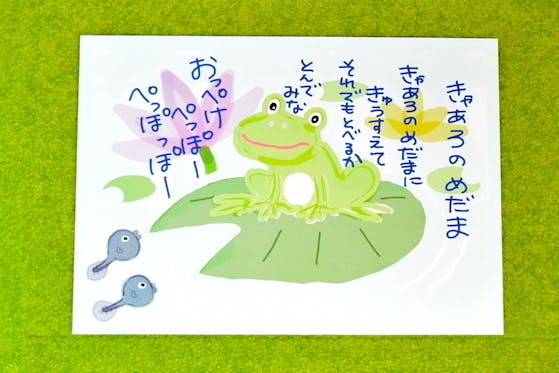 きゃあろのめだま
きゃあろのめだまに
きゅうすえて
それでもとべるか
とんで
みな
おっぺけ
ぺっぽー
ぺっぽっぽー